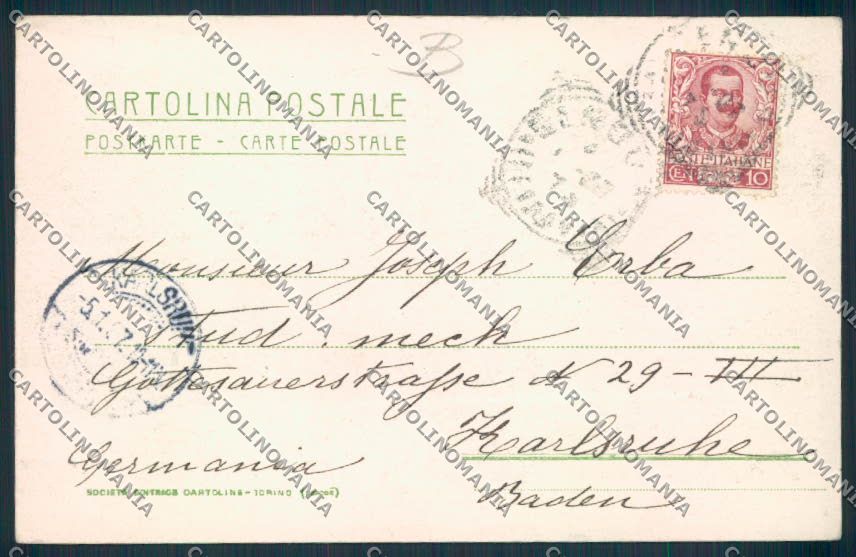 B
CARTOLINA POSTALE
POSTKARTE - CARTE POSTALE
POSTE ITALIANE
CENT. 10
Monsieur Joseph Corba
Stud. mech
Gottesauerstrasse N 29 - III
Karlsruhe
Baden
Germania
KARLSRUHE
SOCIETÀ EDITRICE CARTOLINE - TORINO
CARTOLINOMANIA